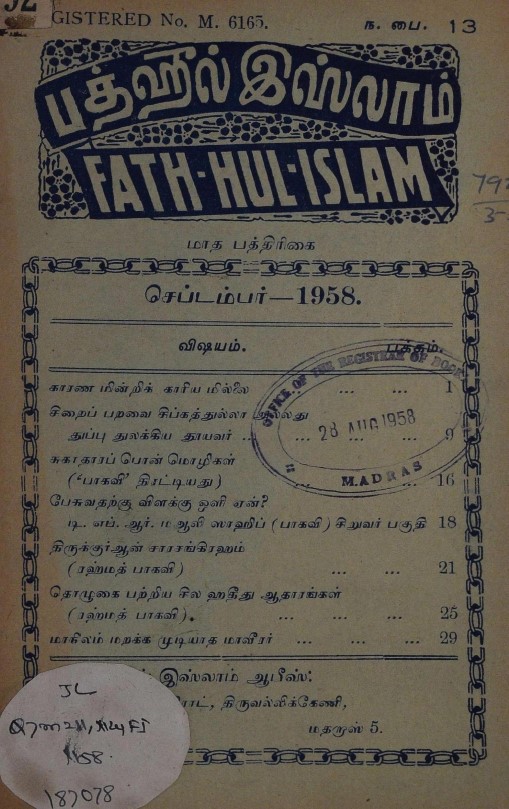 GISTERED No. M. 6165. ந. பை. 13
பத்ஹுல் இஸ்லாம்
FATH-HUL-ISLAM
மாத பத்திரிகை
செப்டம்பர்—1958.
விஷயம். பக்கம்.
காரண மின்றிக் காரிய மில்லை ... ... 1
சிறைப் பறவை சிப்கத்துல்லா அல்லது
துப்பு துலக்கிய தூயவர் ... ... ... ... 9
சுகாதாரப் பொன் மொழிகள்
('பாகவி' திரட்டியது) ... 16
பேசுவதற்கு விளக்கு ஒளி ஏன்?
டி. எப். ஆர். ம ஆலி ஸாஹிப் (பாகவி) சிறுவர் பகுதி 18
திருக்குர்ஆன் சாரசங்கிரஹம்
(ரஹ்மத் பாகவி) ... ... 21
தொழுகை பற்றிய சில ஹதீது ஆதாரங்கள்
(ரஹ்மத் பாகவி). ... ... ... 25
மாநிலம் மறக்க முடியாத மாவீரர் ... ... ... 29
OFFICE OF THE REGISTRAR OF BOOK
28 AUG 1958
MADRAS
இஸ்லாம் ஆபீஸ்:
ரோட், திருவல்லிக்கேணி,
மதராஸ் 5.
JL
187078